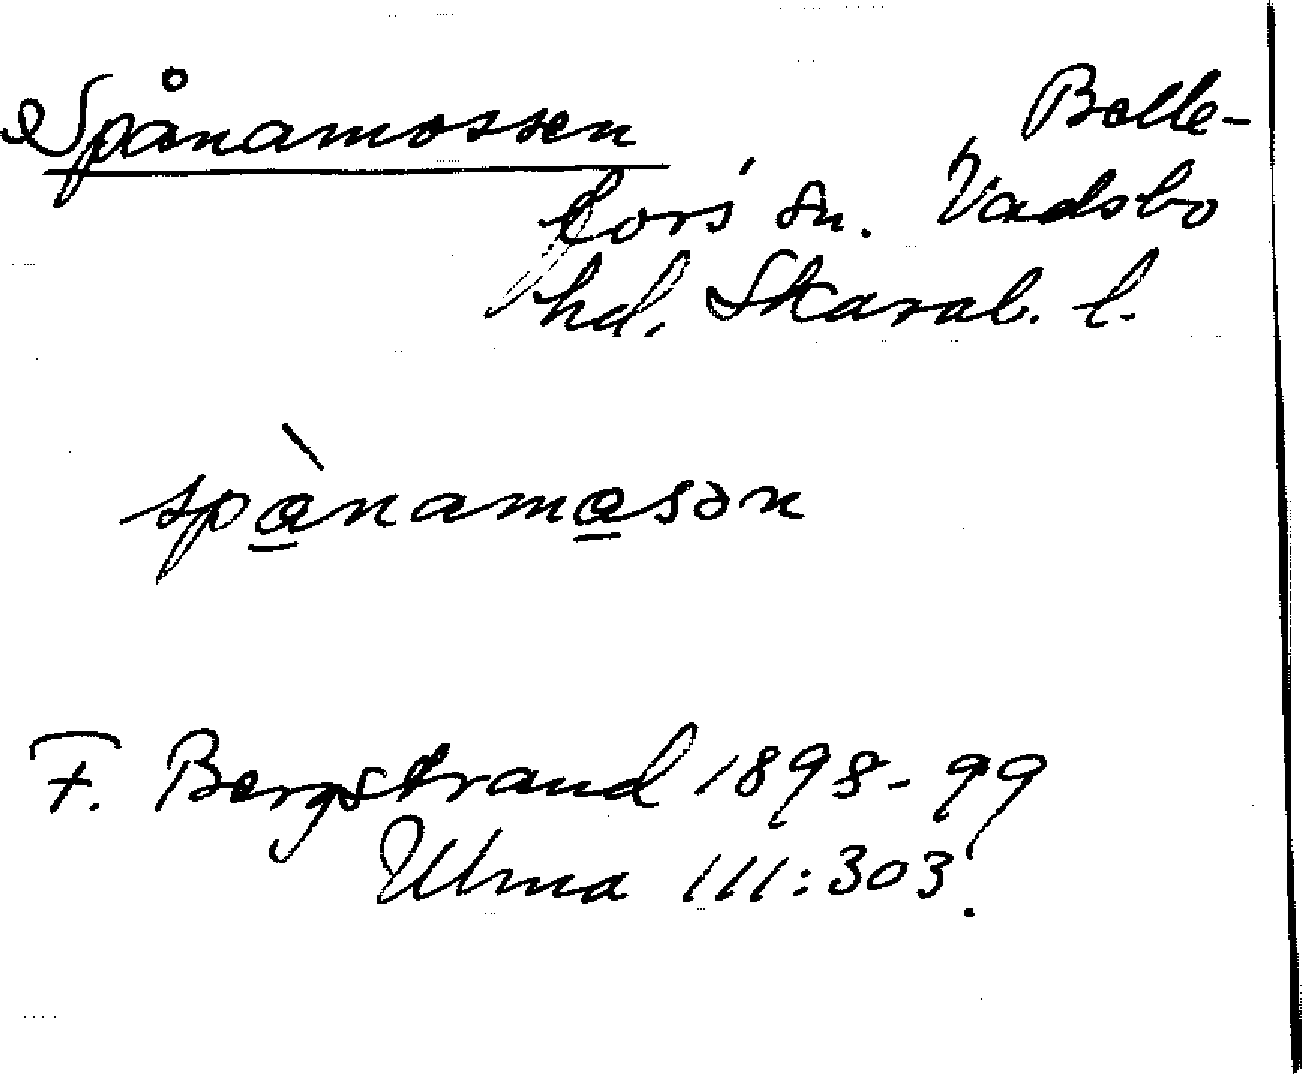 Spånamossen
Bälle-
fors sn. Vadsbo
hd. Skarab. l.
spànamasən
F. Bergstrand 1898-99
Ulma 111:303.